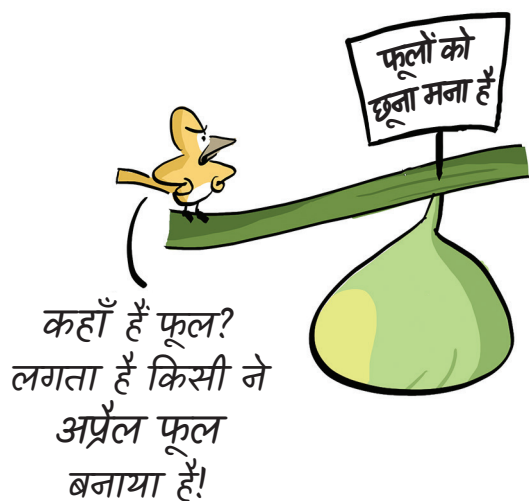 फूलों को
छूना मना है
कहाँ हैं फूल?
लगता है किसी ने
अप्रैल फूल
बनाया है!